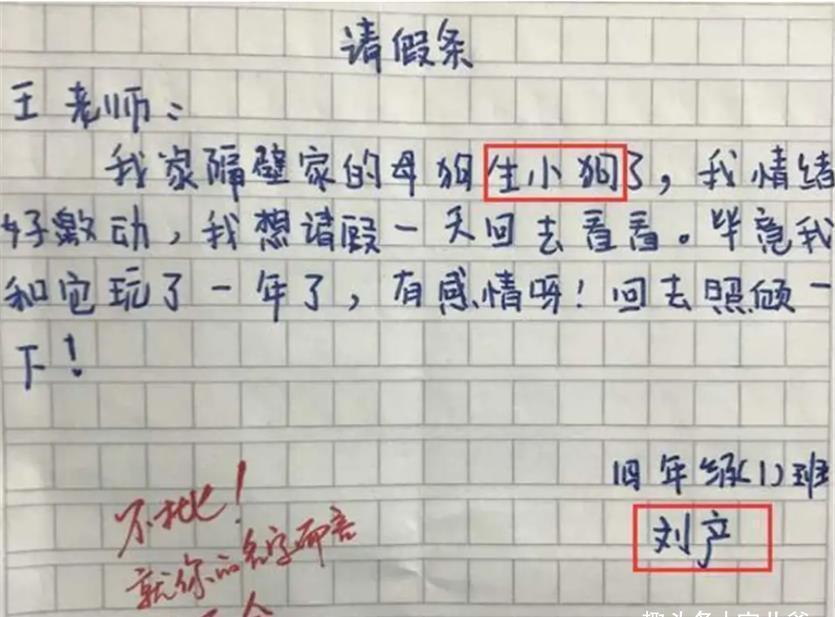 请假条
王老师：
我家隔壁家的母狗生小狗了，我情绪
好激动，我想请假一天回去看看。毕竟我
和它玩了一年了，有感情呀！回去照顾一
下！
四年级(1)班
刘产
不批！
就你的名字而言